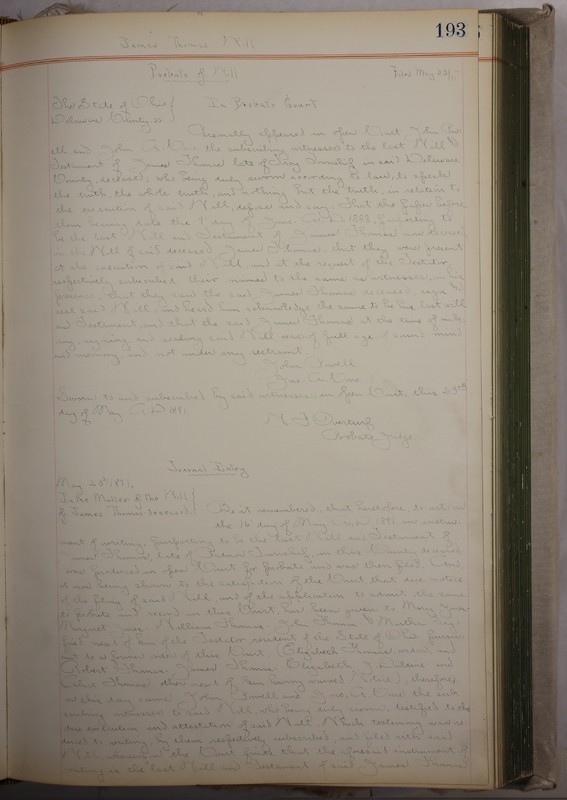 193
James Thomas Will
Probate of Will
Filed May 23/
The State of Ohio
Delaware County ss
In Probate Court
Personally appeared in open Court, John
and John A. the subscribing witnesses to the last Will
Testament of James Thomas late of Troy Township in said Delaware
County, deceased; who being duly sworn according to law, to speak
the truth, the whole truth, and nothing but the truth, in relation to
the execution of said Will, depose and say: That the paper before
them bearing date the day of June A.D. 1888, purporting to
be the last Will and Testament of James Thomas now
in the Will of said deceased James Thomas, that they were present
at the execution of said Will, and at the request of the Testator
respectively subscribed their names to the same as witnesses, in his
presence; that they saw the said James Thomas deceased, sign and
seal said Will, and heard him acknowledge the same to be his last will
and Testament and that the said James Thomas at the time of mak
ing, signing and sealing said Will was of full age, of sound mind
and memory and not under any restraint.
John Powell
Sworn to and subscribed by said witnesses, in open Court, this 23rd
day of May A.D. 1891
Probate Judge
Journal Entry
May 1891.
In the Matter of the Will
of James Thomas deceased
Be it remembered, that heretofore, to wit: on
the 16 day of May A.D. 1891 an instru
ment of writing, purporting to be the last Will and Testament of
James Thomas, late of Township, in this County deceased
was produced in open Court for probate and was then filed. And
it now being shown to the satisfaction of the Court that due notice
of the filing of said Will, and of the application to admit the same
to probate and record in this Court, has been given to Mary
Margaret William Thomas John Thomas Martha
next of kin of the Testator resident of the State of Ohio pursu
ant to a former order of this Court (Elizabeth Thomas widow, and
Robert Thomas James Thomas Elizabeth J. and
Thomas other next of kin having waived notice), therefore,
on this day came John Powell and the sub
scribing witnesses to said Will, who being duly sworn, testified to the
due execution and attestation of said Will. Which testimony was re
duced to writing by them respectively subscribed and filed with said
Will. Whereupon the Court finds that the aforesaid instrument of
writing is the last Will and Testament of said James Thomas